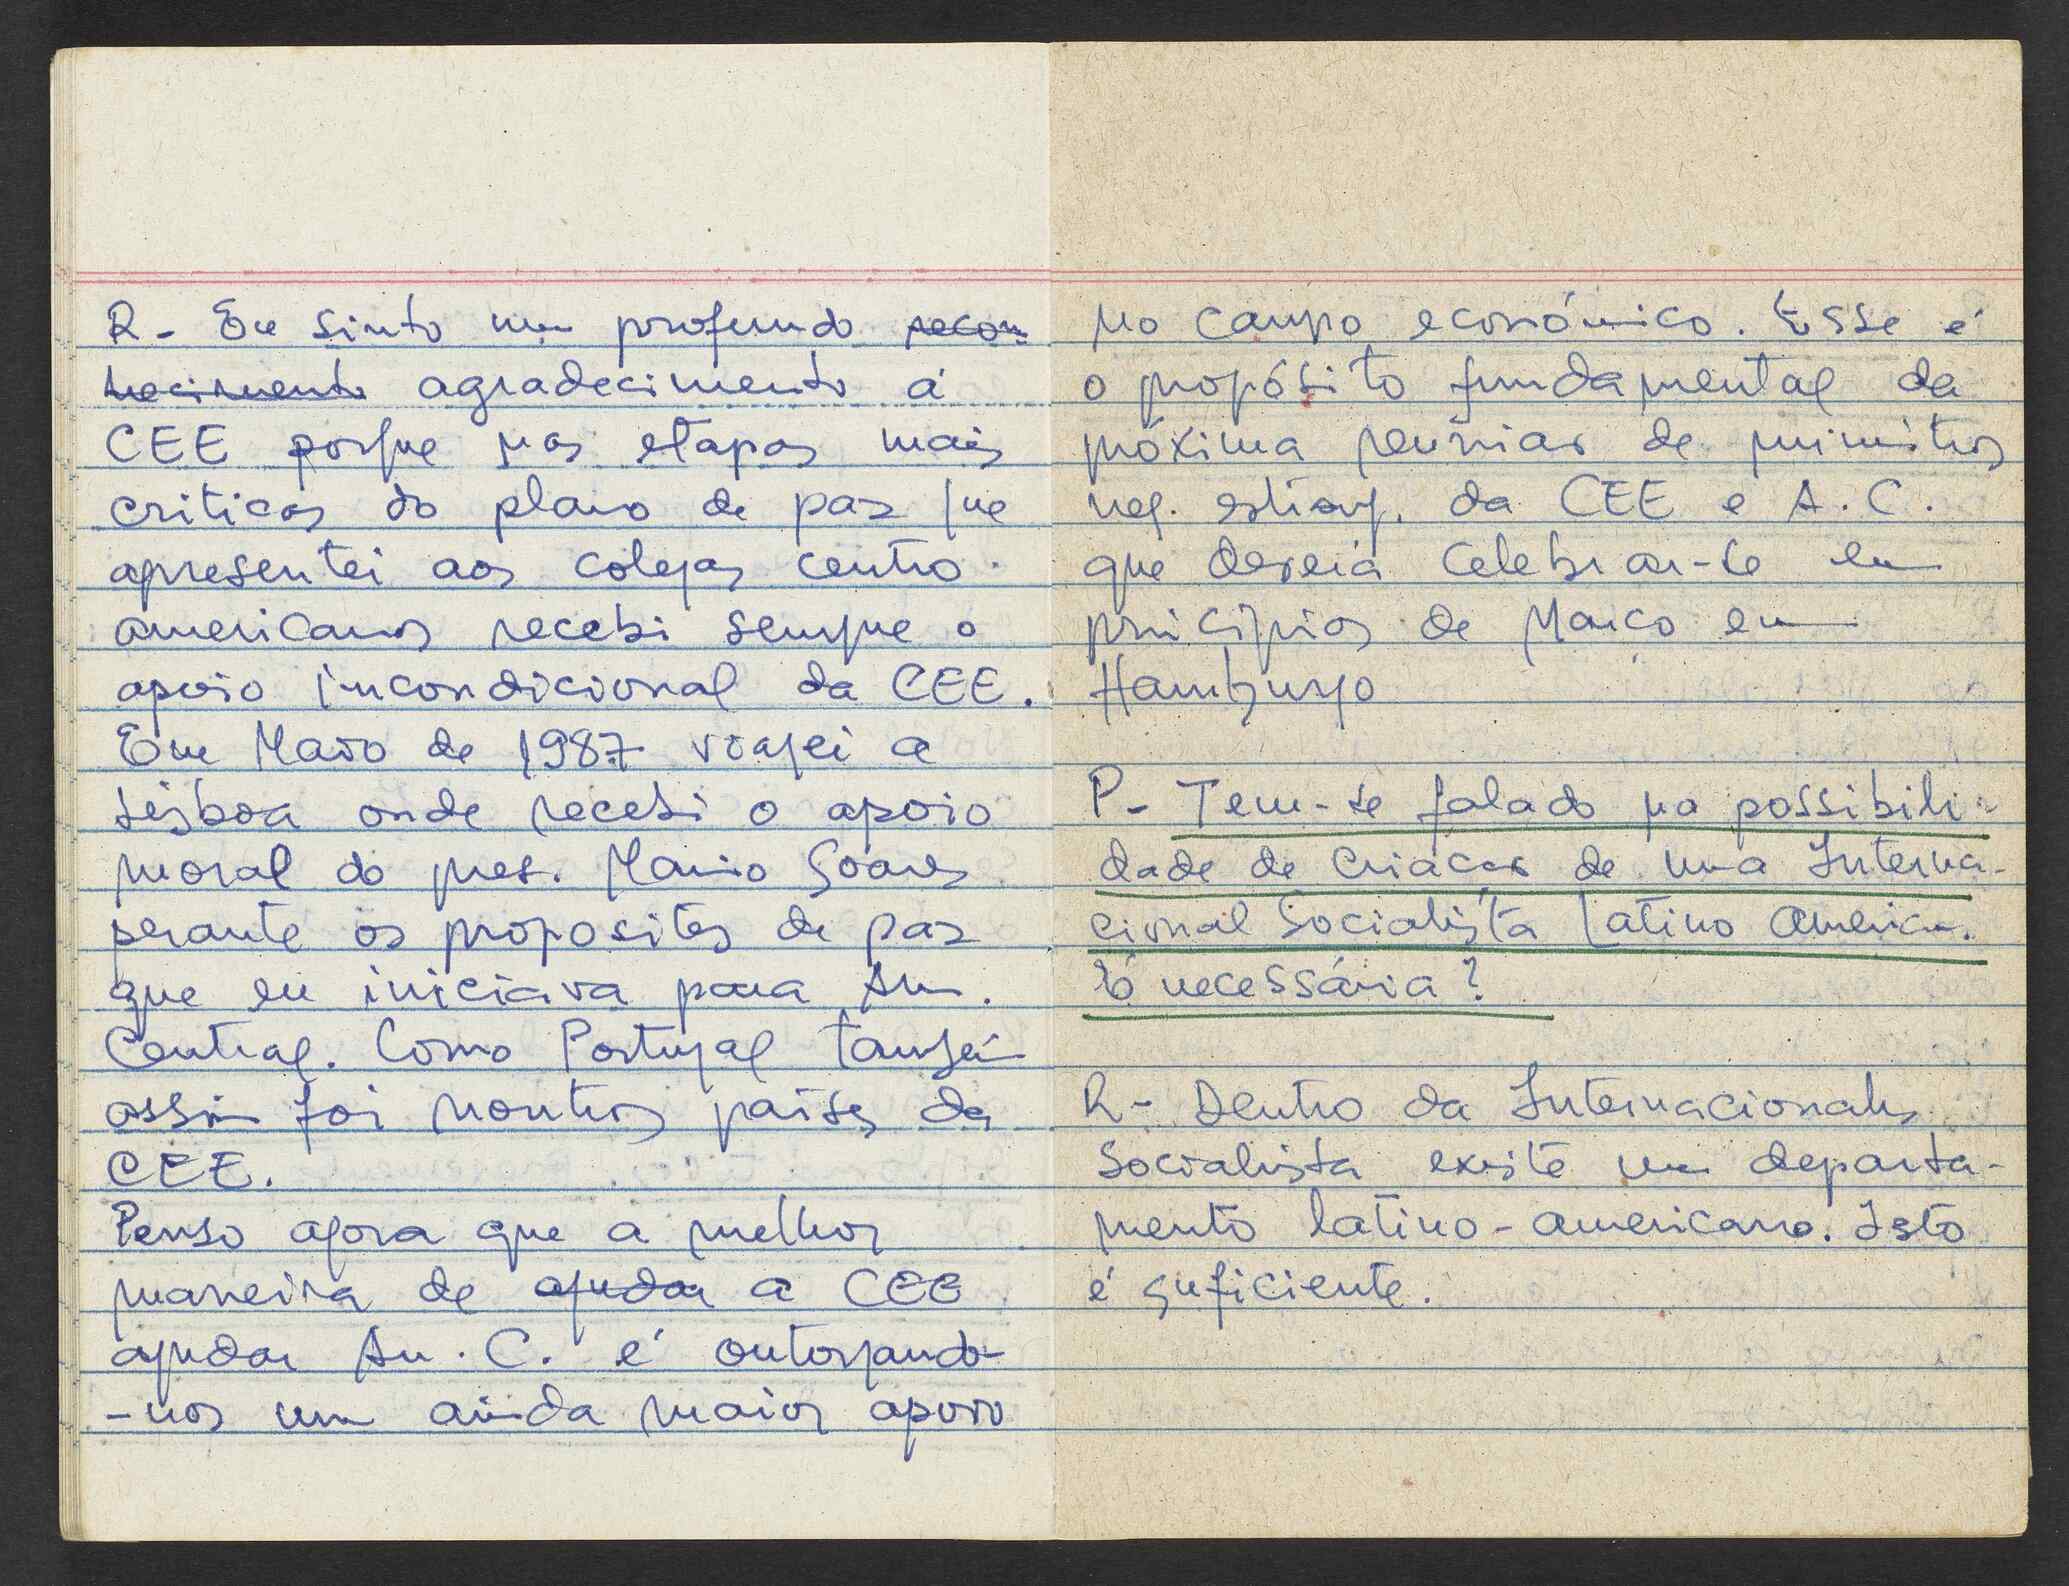 R- Eu sinto um profundo recon-
hecimento agradecimento á
CEE porque nas etapas mais
criticas do plano de paz que
apresentei aos colegas centro-
americanos recebi sempre o
apoio incondicional da CEE.
Em Maio de 1987 viajei a
Lisboa onde recebi o apoio
moral do pres. Mario Soares
perante os propositos de paz
que eu iniciava para Am.
Central. Como Portugal também
assim foi noutros países da
CEE.
Penso agora que a melhor
maneira de ajudar a CEE
ajudar Am. C. é outorgando-
-nos um ainda maior apoio
no campo económico. Esse é
o propósito fundamental da
próxima reunião de ministros
neg. estrang. da CEE e A.C.
que deverá celebrar-se em
princípios de Março em
Hamburgo
P- Tem-se falado na possibili-
dade de criação de uma Interna-
cional Socialista Latino American.
É necessária?
R- Dentro da Internacional
Socialista existe um departa-
mento latino-americano. Isto
é suficiente.